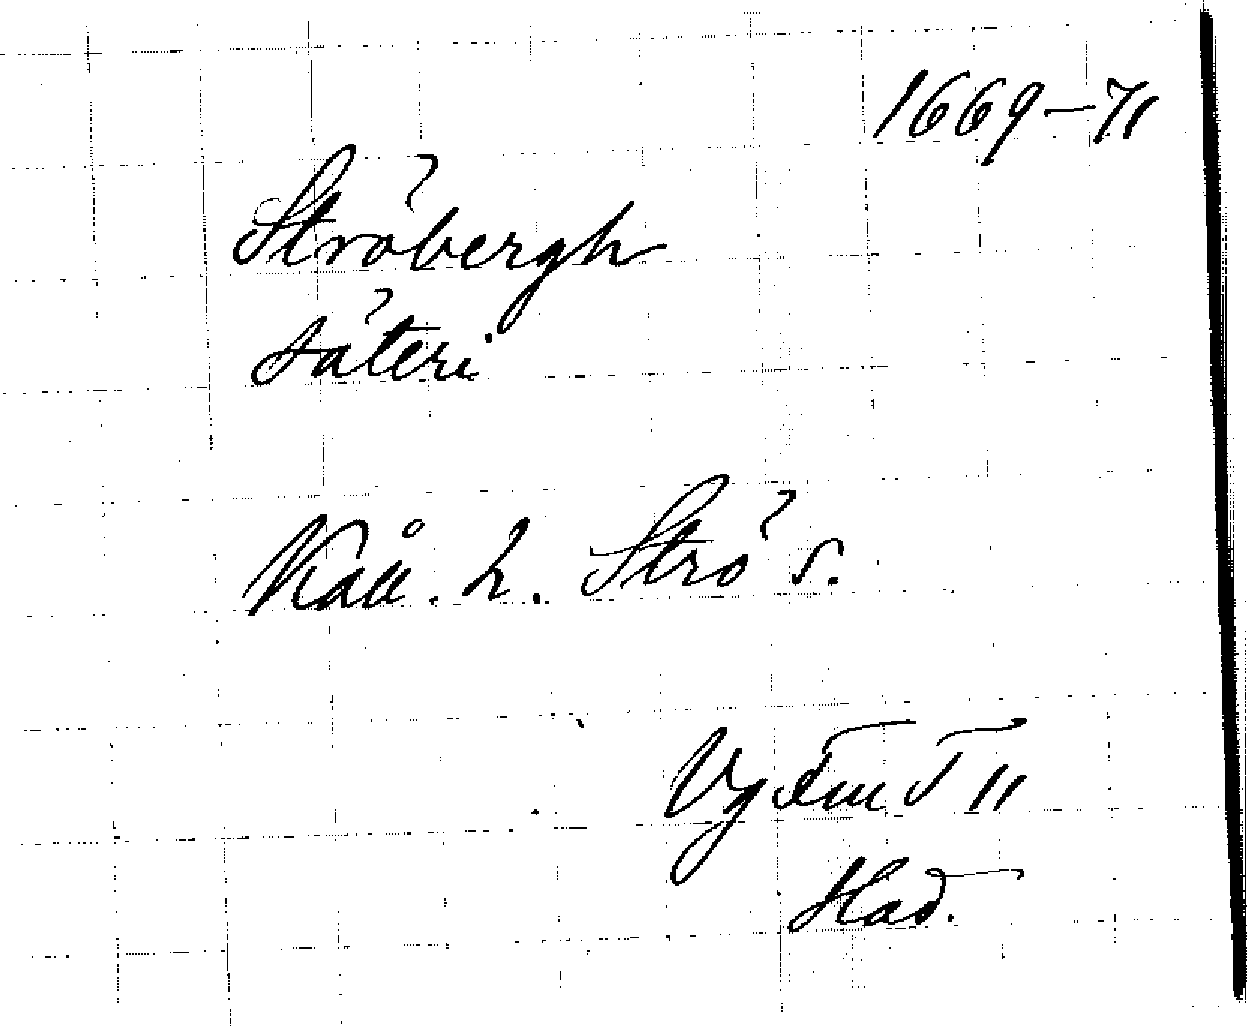 1669-71
Ströbergh
säteri
Kåll. h. Strö s.
Vg Fm T 11
Had.